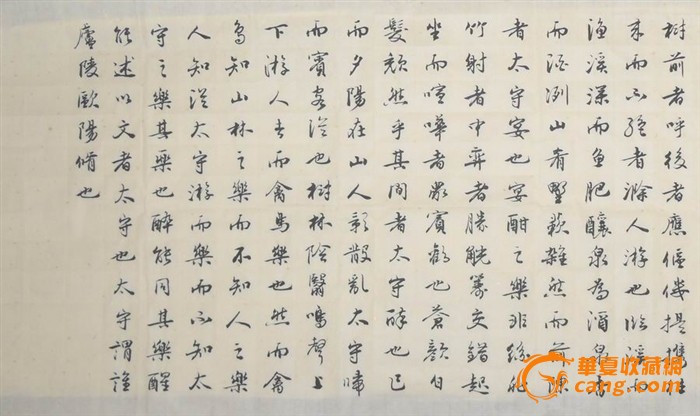 樹前者呼後者應傴僂提攜往
來而不絕者滁人游也臨溪而
漁溪深而魚肥釀泉為酒泉香
而酒冽山肴野蔌雜然而前陳
者太守宴也宴酣之樂非絲非
竹射者中弈者勝觥籌交錯起
坐而喧嘩者衆賓歡也蒼顏白
髮頹然乎其間者太守醉也已
而夕陽在山人影散亂太守歸
而賓客從也樹林陰翳鳴聲上
下游人去而禽鳥樂也然而禽
鳥知山林之樂而不知人之樂
人知從太守游而樂而不知太
守之樂其樂也醉能同其樂醒
能述以文者太守也太守謂誰
廬陵歐陽脩也
華夏收藏網
cang.com